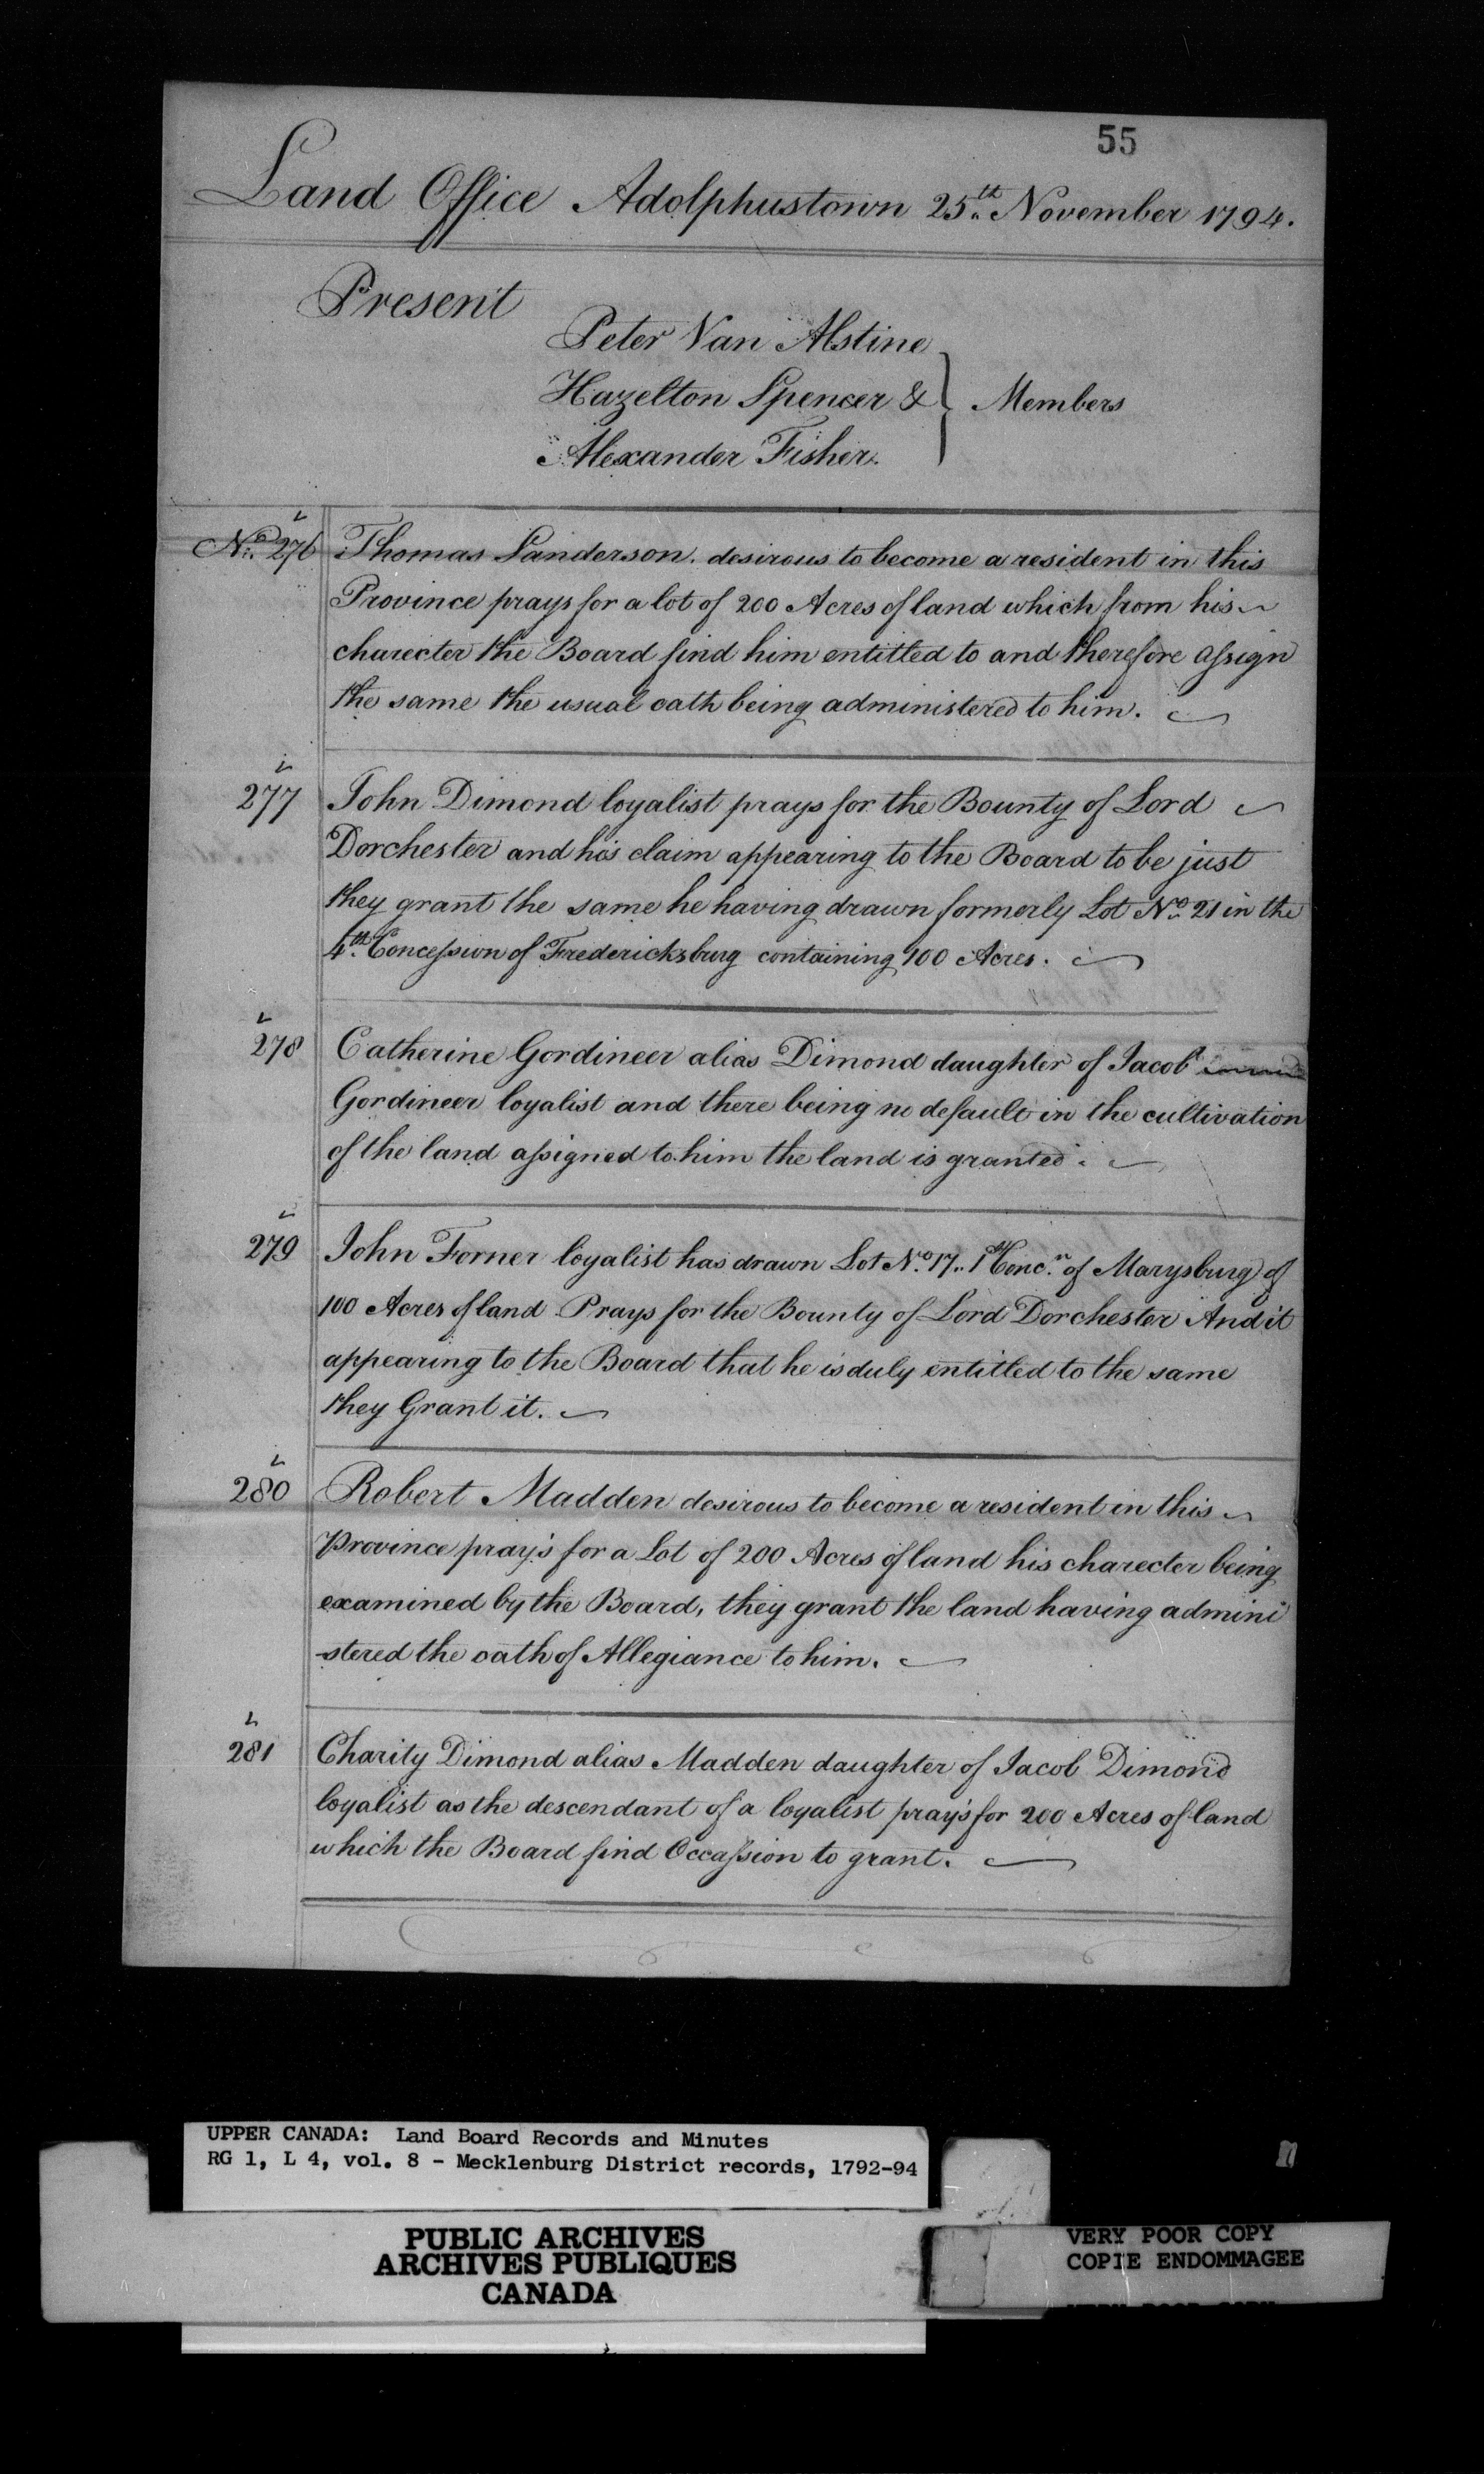 55
Land Office Adolphustown 25th November 1794.
Present
Peter Van Alstine
Hazelton Spencer &
Alexander Fisher.
Members
No. 276
Thomas Sanderson. desirous to become a resident in this
Province prays for a lot of 200 Acres of land which from his
charecter the Board find him entitled to and therefore assign
the same the usual oath being administered to him.
277
John Dimond loyalist prays for the Bounty of Lord
Dorchester and his claim appearing to the Board to be just
they grant the same he having drawn formerly Lot No. 21 in the
4th. Concession of Fredericksburg containing 100 Acres.
278
Catherine Gordineer alias Dimond daughter of Jacob
Gordineer loyalist and there being no default in the cultivation
of the land assigned to him the land is granted.
279
John Forner loyalist has drawn Lot No. 17.. 1st Conc.n of Marysburg of
100 Acres of land Prays for the Bounty of Lord Dorchester And it
appearing to the Board that he is duly entitled to the same
they Grant it.
280
Robert Madden desirous to become a resident in this
Province pray's for a Lot of 200 Acres of land his charecter being
examined by the Board, they grant the land having admini
-stered the oath of Allegiance to him.
281
Charity Dimond alias Madden daughter of Jacob Dimond
loyalist as the descendant of a loyalist pray's for 200 Acres of land
which the Board find Occassion to grant.
UPPER CANADA: Land Board Records and Minutes
RG 1, L 4, vol. 8 - Mecklenburg District records, 1792-94
PUBLIC ARCHIVES
ARCHIVES PUBLIQUES
CANADA
VERY POOR COPY
COPIE ENDOMMAGEE
VERY POOR COPY